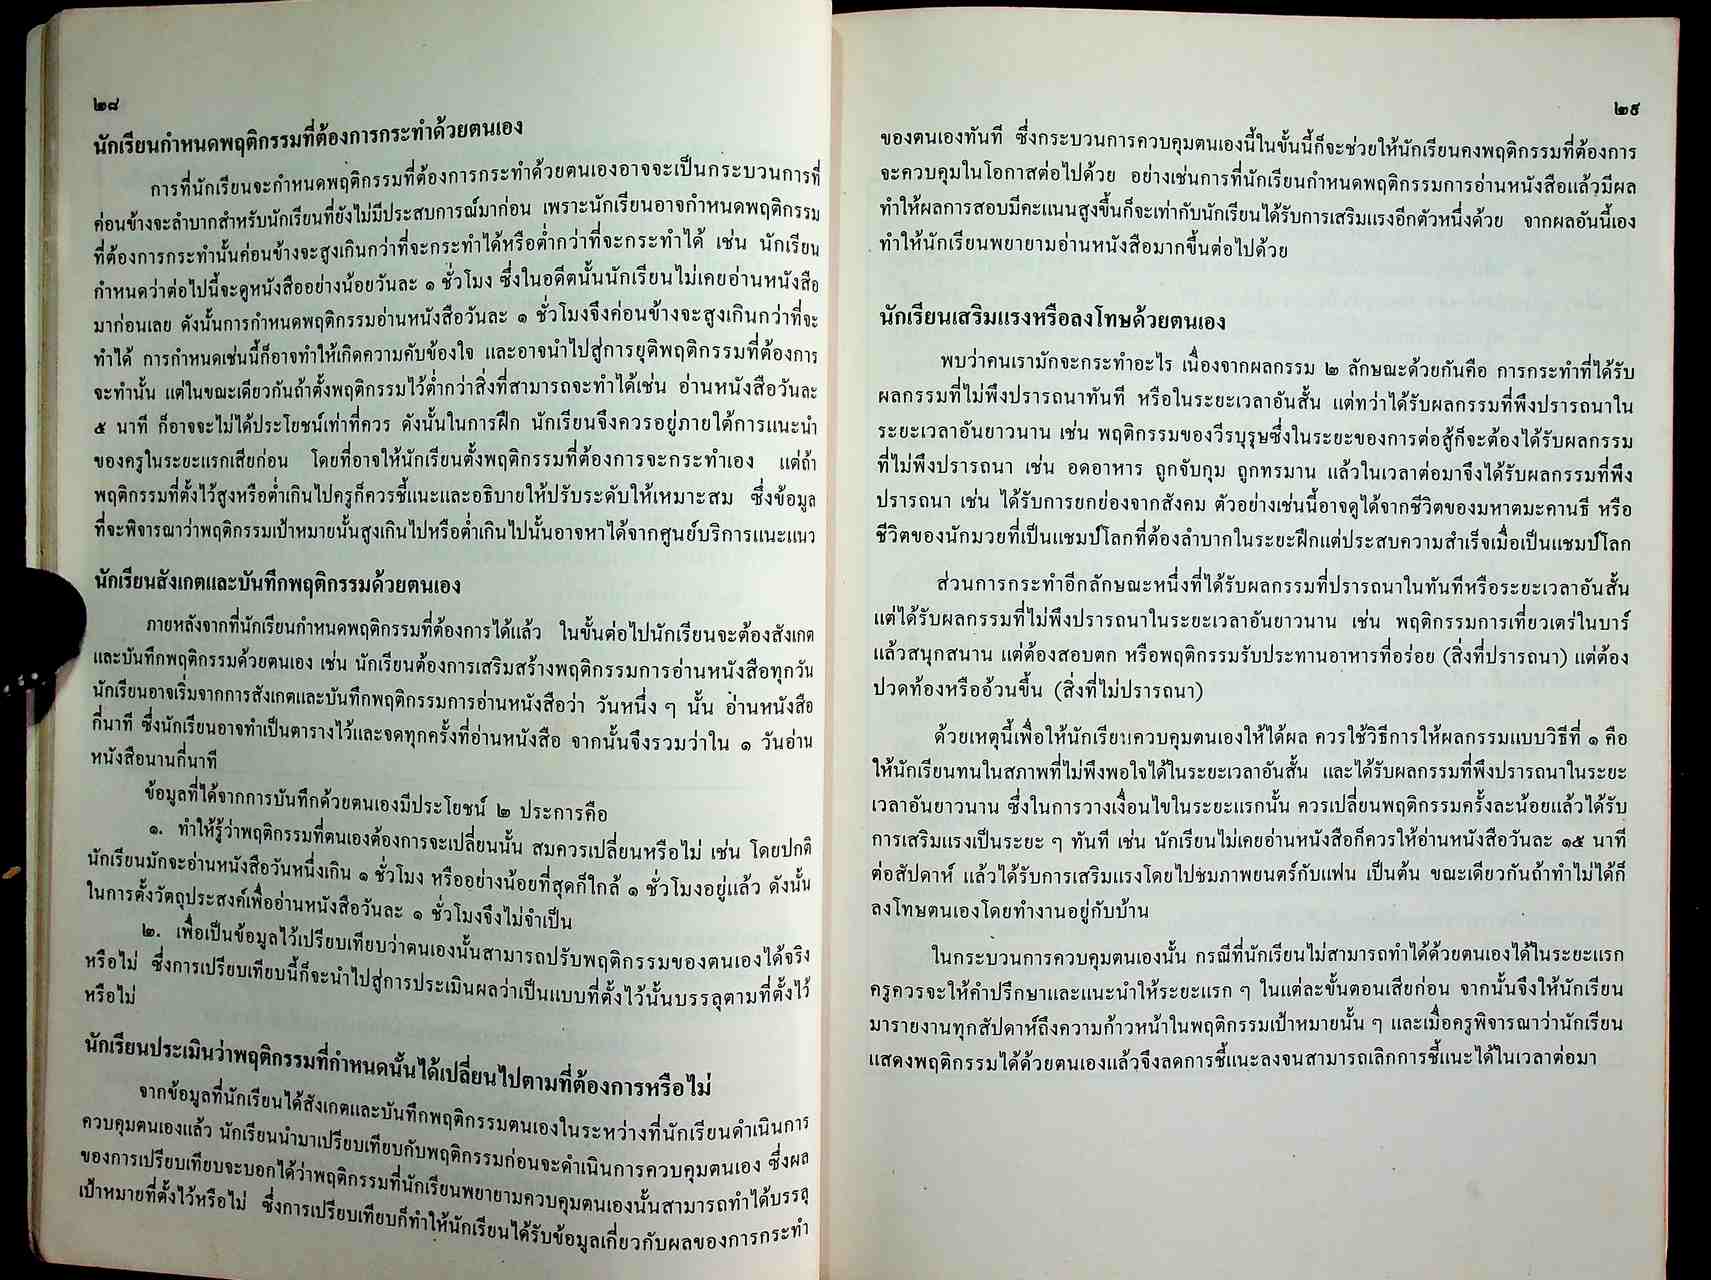 ๒๘
นักเรียนกำหนดพฤติกรรมที่ต้องการกระทำด้วยตนเอง
การที่นักเรียนจะกำหนดพฤติกรรมที่ต้องการกระทำด้วยตนเองอาจจะเป็นกระบวนการที่
ค่อนข้างจะลำบากสำหรับนักเรียนที่ยังไม่มีประสบการณ์มาก่อน เพราะนักเรียนอาจกำหนดพฤติกรรม
ที่ต้องการกระทำนั้นค่อนข้างจะสูงเกินกว่าที่จะกระทำได้หรือต่ำกว่าที่จะกระทำได้ เช่น นักเรียน
กำหนดว่าต่อไปนี้จะดูหนังสืออย่างน้อยวันละ ๑ ชั่วโมง ซึ่งในอดีตนั้นนักเรียนไม่เคยอ่านหนังสือ
มาก่อนเลย ดังนั้นการกำหนดพฤติกรรมอ่านหนังสือวันละ ๑ ชั่วโมงจึงค่อนข้างจะสูงเกินกว่าที่จะ
ทำได้ การกำหนดเช่นนี้ก็อาจทำให้เกิดความคับข้องใจ และอาจนำไปสู่การยุติพฤติกรรมที่ต้องการ
จะทำนั้น แต่ในขณะเดียวกันถ้าตั้งพฤติกรรมไว้ต่ำกว่าสิ่งที่สามารถจะทำได้เช่น อ่านหนังสือวันละ
๕ นาที ก็อาจจะไม่ได้ประโยชน์เท่าที่ควร ดังนั้นในการฝึก นักเรียนจึงควรอยู่ภายใต้การแนะนำ
ของครูในระยะแรกเสียก่อน โดยที่อาจให้นักเรียนตั้งพฤติกรรมที่ต้องการจะกระทำเอง แต่ถ้า
พฤติกรรมที่ตั้งไว้สูงหรือต่ำเกินไปครูก็ควรชี้แนะและอธิบายให้ปรับระดับให้เหมาะสม ซึ่งข้อมูล
ที่จะพิจารณาว่าพฤติกรรมเป้าหมายนั้นสูงเกินไปหรือต่ำเกินไปนั้นอาจหาได้จากศูนย์บริการแนะแนว
นักเรียนสังเกตและบันทึกพฤติกรรมด้วยตนเอง
ภายหลังจากที่นักเรียนกำหนดพฤติกรรมที่ต้องการได้แล้ว ในขั้นต่อไปนักเรียนจะต้องสังเกต
และบันทึกพฤติกรรมด้วยตนเอง เช่น นักเรียนต้องการเสริมสร้างพฤติกรรมการอ่านหนังสือทุกวัน
นักเรียนอาจเริ่มจากการสังเกตและบันทึกพฤติกรรมการอ่านหนังสือว่า วันหนึ่ง ๆ นั้น อ่านหนังสือ
กี่นาที ซึ่งนักเรียนอาจทำเป็นตารางไว้และจดทุกครั้งที่อ่านหนังสือ จากนั้นจึงรวมว่าใน ๑ วันอ่าน
หนังสือนานกี่นาที
ข้อมูลที่ได้จากการบันทึกด้วยตนเองมีประโยชน์ ๒ ประการคือ
๑. ทำให้รู้ว่าพฤติกรรมที่ตนเองต้องการจะเปลี่ยนนั้น สมควรเปลี่ยนหรือไม่ เช่น โดยปกติ
นักเรียนมักจะอ่านหนังสือวันหนึ่งเกิน ๑ ชั่วโมง หรืออย่างน้อยที่สุดก็ใกล้ ๑ ชั่วโมงอยู่แล้ว ดังนั้น
ในการตั้งวัตถุประสงค์เพื่ออ่านหนังสือวันละ ๑ ชั่วโมงจึงไม่จำเป็น
๒. เพื่อเป็นข้อมูลไว้เปรียบเทียบว่าตนเองนั้นสามารถปรับพฤติกรรมของตนเองได้จริง
หรือไม่ ซึ่งการเปรียบเทียบนี้ก็จะนำไปสู่การประเมินผลว่าเป็นแบบที่ตั้งไว้นั้นบรรลุตามที่ตั้งไว้
หรือไม่
นักเรียนประเมินว่าพฤติกรรมที่กำหนดนั้นได้เปลี่ยนไปตามที่ต้องการหรือไม่
จากข้อมูลที่นักเรียนได้สังเกตและบันทึกพฤติกรรมตนเองในระหว่างที่นักเรียนดำเนินการ
ควบคุมตนเองแล้ว นักเรียนนำมาเปรียบเทียบกับพฤติกรรมก่อนจะดำเนินการควบคุมตนเอง ซึ่งผล
ของการเปรียบเทียบจะบอกได้ว่าพฤติกรรมที่นักเรียนพยายามควบคุมตนเองนั้นสามารถทำได้บรรลุ
เป้าหมายที่ตั้งไว้หรือไม่ ซึ่งการเปรียบเทียบก็ทำให้นักเรียนได้รับข้อมูลเกี่ยวกับผลของการกระทำ
๒๙
ของตนเองทันที ซึ่งกระบวนการควบคุมตนเองนี้ในขั้นนี้ก็จะช่วยให้นักเรียนคงพฤติกรรมที่ต้องการ
จะควบคุมในโอกาสต่อไปด้วย อย่างเช่นการที่นักเรียนกำหนดพฤติกรรมการอ่านหนังสือแล้วมีผล
ทำให้ผลการสอบมีคะแนนสูงขึ้นก็จะเท่ากับนักเรียนได้รับการเสริมแรงอีกตัวหนึ่งด้วย จากผลอันนี้เอง
ทำให้นักเรียนพยายามอ่านหนังสือมากขึ้นต่อไปด้วย
นักเรียนเสริมแรงหรือลงโทษด้วยตนเอง
พบว่าคนเรามักจะกระทำอะไร เนื่องจากผลกรรม ๒ ลักษณะด้วยกันคือ การกระทำที่ได้รับ
ผลกรรมที่ไม่พึงปรารถนาทันที หรือในระยะเวลาอันสั้น แต่ทว่าได้รับผลกรรมที่พึงปรารถนาใน
ระยะเวลาอันยาวนาน เช่น พฤติกรรมของวีรบุรุษซึ่งในระยะของการต่อสู้ก็จะต้องได้รับผลกรรม
ที่ไม่พึงปรารถนา เช่น อดอาหาร ถูกจับกุม ถูกทรมาน แล้วในเวลาต่อมาจึงได้รับผลกรรมที่พึง
ปรารถนา เช่น ได้รับการยกย่องจากสังคม ตัวอย่างเช่นนี้อาจดูได้จากชีวิตของมหาตมะคานธี หรือ
ชีวิตของนักมวยที่เป็นแชมป์โลกที่ต้องลำบากในระยะฝึกแต่ประสบความสำเร็จเมื่อเป็นแชมป์โลก
ส่วนการกระทำอีกลักษณะหนึ่งที่ได้รับผลกรรมที่ปรารถนาในทันทีหรือระยะเวลาอันสั้น
แต่ได้รับผลกรรมที่ไม่พึงปรารถนาในระยะเวลาอันยาวนาน เช่น พฤติกรรมการเที่ยวเตร่ในบาร์
แล้วสนุกสนาน แต่ต้องสอบตก หรือพฤติกรรมรับประทานอาหารที่อร่อย (สิ่งที่ปรารถนา) แต่ต้อง
ปวดท้องหรืออ้วนขึ้น (สิ่งที่ไม่ปรารถนา)
ด้วยเหตุนี้เพื่อให้นักเรียนควบคุมตนเองให้ได้ผล ควรใช้วิธีการให้ผลกรรมแบบวิธีที่ ๑ คือ
ให้นักเรียนทนในสภาพที่ไม่พึงพอใจได้ในระยะเวลาอันสั้น และได้รับผลกรรมที่พึงปรารถนาในระยะ
เวลาอันยาวนาน ซึ่งในการวางเงื่อนไขในระยะแรกนั้น ควรเปลี่ยนพฤติกรรมครั้งละน้อยแล้วได้รับ
การเสริมแรงเป็นระยะ ๆ ทันที เช่น นักเรียนไม่เคยอ่านหนังสือก็ควรให้อ่านหนังสือวันละ ๑๕ นาที
ต่อสัปดาห์ แล้วได้รับการเสริมแรงโดยไปชมภาพยนตร์กับแฟน เป็นต้น ขณะเดียวกันถ้าทำไม่ได้ก็
ลงโทษตนเองโดยทำงานอยู่กับบ้าน
ในกระบวนการควบคุมตนเองนั้น กรณีที่นักเรียนไม่สามารถทำได้ด้วยตนเองได้ในระยะแรก
ครูควรจะให้คำปรึกษาและแนะนำให้ระยะแรก ๆ ในแต่ละขั้นตอนเสียก่อน จากนั้นจึงให้นักเรียน
มารายงานทุกสัปดาห์ถึงความก้าวหน้าในพฤติกรรมเป้าหมายนั้น ๆ และเมื่อครูพิจารณาว่านักเรียน
แสดงพฤติกรรมได้ด้วยตนเองแล้วจึงลดการชี้แนะลงจนสามารถเลิกการชี้แนะได้ในเวลาต่อมา